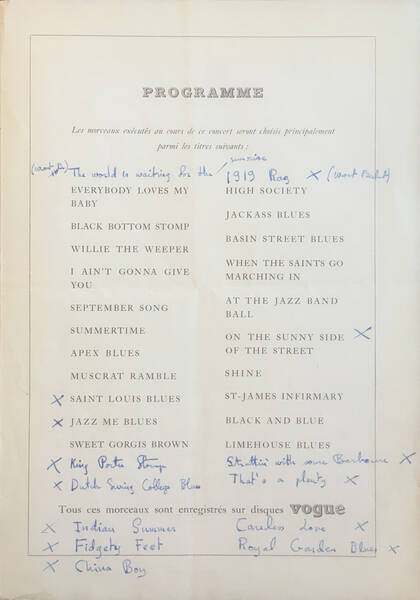 PROGRAMME
Les morceaux exécutés au cours de ce concert seront choisis principalement
parmi les titres suivants :
sunrise
The world is waiting for the
EVERYBODY LOVES MY
BABY
BLACK BOTTOM STOMP
WILLIE THE WEEPER
I AIN'T GONNA GIVE
YOU
SEPTEMBER SONG
SUMMERTIME
APEX BLUES
MUSCRAT RAMBLE
X SAINT LOUIS BLUES
X JAZZ ME BLUES
SWEET GORGIS BROWN
X King Porter Stomp
X Dutch Swing College Blues
1919 Rag X
HIGH SOCIETY
JACKASS BLUES
BASIN STREET BLUES
WHEN THE SAINTS GO
MARCHING IN
AT THE JAZZ BAND
BALL
ON THE SUNNY SIDE X
OF THE STREET
SHINE
ST-JAMES INFIRMARY
BLACK AND BLUE
LIMEHOUSE BLUES
Struttin' with some Barbecue X
That's a plenty X
Tous ces morceaux sont enregistrés sur disques vogue
X Indian Summer
X Fidgety Feet
X China Boy
Careless Love X
Royal Garden Blues X